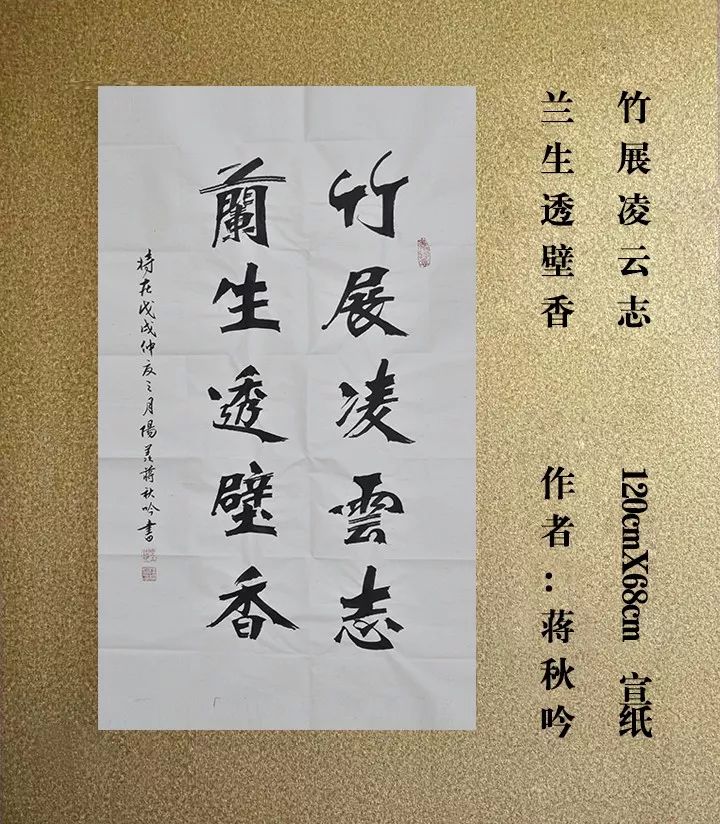 竹展凌云志
兰生透壁香
120cmX68cm 宣纸
作者：蒋秋吟
竹展凌雲志
蘭生透壁香
時在戊戌仲夏之月陽羨蔣秋吟書